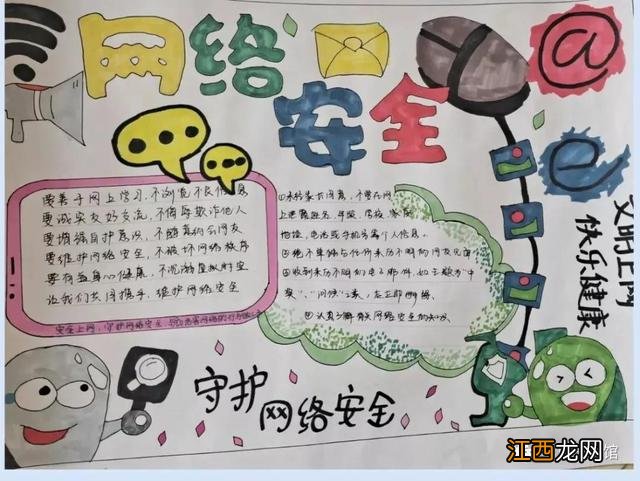 网络安全
@
文明上网
快乐健康
要善于网上学习,不浏览不良信息
要诚实友好交流,不侮辱欺诈他人
要增强自护意识,不随意约会网友
要维护网络安全,不破坏网络秩序
要有益身心健康,不沉溺虚拟时空
让我们共同携手,维护网络安全
安全上网,守护网络安全
①未经家长同意,不要在网
上
地址,电话或手机号等个人信息。
②绝不单独与任何来历不明的网友见面
③收到来历不明的电子邮件,如主题为"中
奖"、"问候"之类,应立即删除
④认真了解有关网络安全的知识
守护网络安全
江西龙网
馆